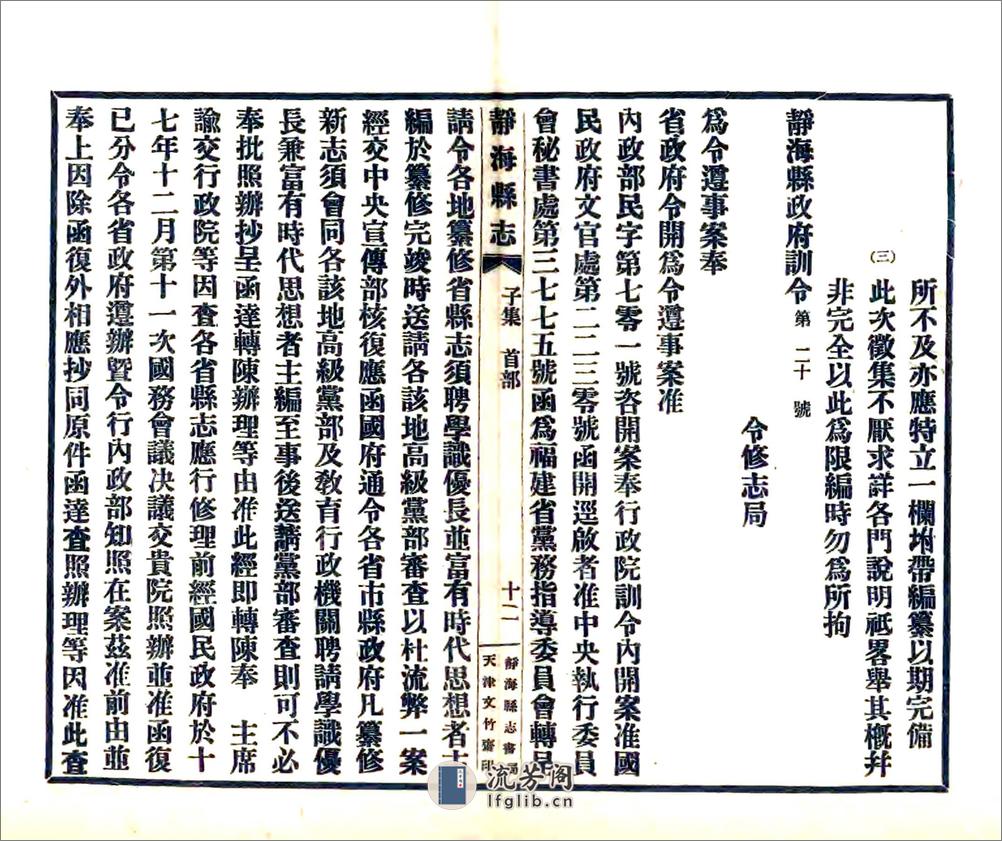 所不及亦應特立一欄坿帶編纂以期完備
(三)此次徵集不厭求詳各門說明祗畧舉其槪幷
非完全以此爲限編時勿爲所拘
靜海縣政府訓令第二十號
令修志局
爲令遵事案奉
省政府令開爲令遵事案准
內政部民字第七零一號咨開案奉行政院訓令內開案准國
民政府文官處第二二三零號函開逕啟者准中央執行委員
會秘書處第三七七五號函爲福建省黨務指導委員會轉呈
靜海縣志 子集 首部 十二 靜海縣志書局 天津文竹齋印
請令各地纂修省縣志須聘學識優長並富有時代思想者主
編於纂修完竣時送請各該地高級黨部審查以杜流弊一案
經交中央宣傳部核復應函國府通令各省市縣政府凡纂修
新志須會同各該地高級黨部及敎育行政機關聘請學識優
長兼富有時代思想者主編至事後送請黨部審查則可不必
奉批照辦抄呈函達轉陳辦理等由准此經即轉陳奉 主席
諭交行政院等因查各省縣志應行修理前經國民政府於十
七年十二月第十一次國務會議決議交貴院照辦並准函復
已分令各省政府遵辦曁令行內政部知照在案茲准前由並
奉上因除函復外相應抄同原件函達查照辦理等因准此查
流芳阁
lfglib.cn